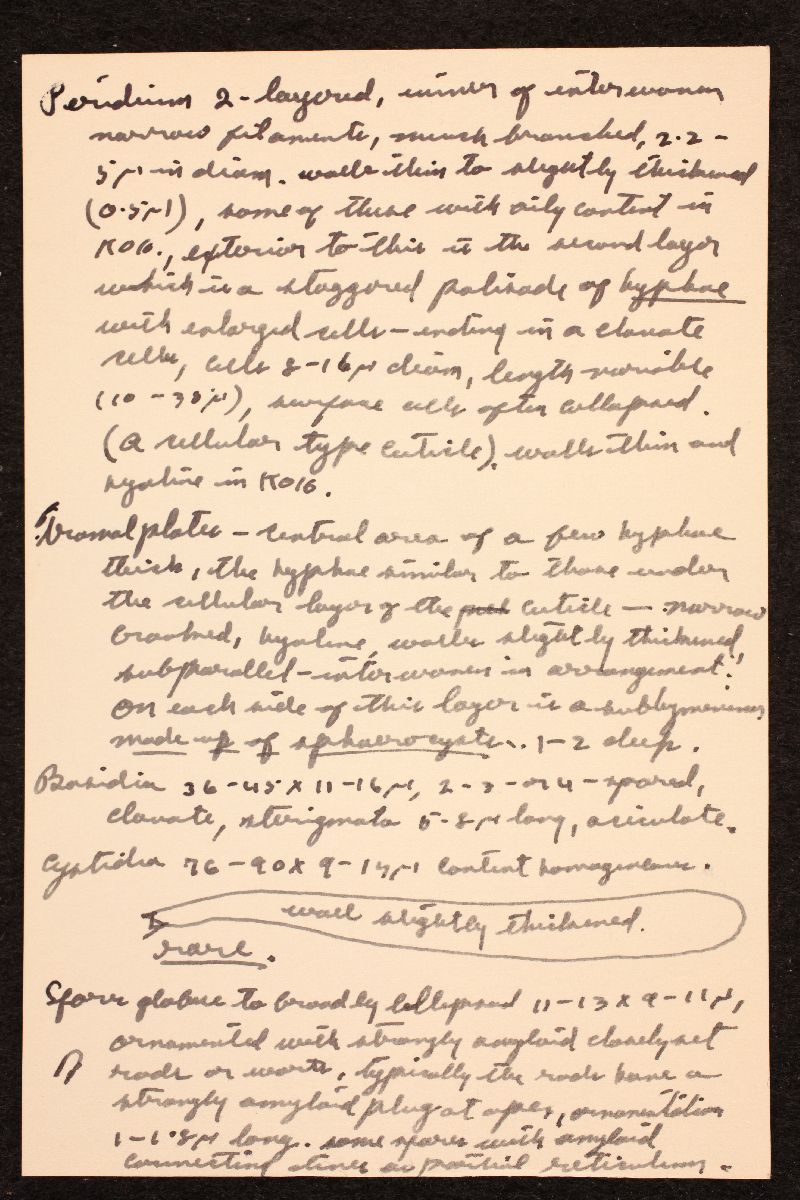 Peridium 2-layered, inner of interwoven
narrow filaments, much branched, 2.2 -
5µ in diam. walls thin to slightly thickened
(0.5µ), some of these with oily content in
KOH., exterior to this is the second layer
which is a staggered palisade of hyphae
with enlarged cells - ending in a clavate
cells, cells 8-16µ diam, length variable
(10 - 38µ), surface cells often collapsed.
(a cellular type cuticle). walls thin and
hyaline in KOH.
Tramal plates - central area of a few hyphae
thick, the hyphae similar to those under
the cellular layer of the cuticle — narrow
branched, hyaline, walls slightly thickened,
subparallel-interwoven in arrangement.
on each side of this layer is a subhymenium
made up of sphaerocysts. 1-2 deep.
Basidia 36-45 x 11-16µ, 2-3-or 4-spored,
clavate, sterigmata 5-8µ long, aciculate.
Cystidia 76-90 x 9-15µ content homogeneous.
wall slightly thickened.
rare.
Spores globose to broadly ellipsoid 11-13 x 9-11µ,
ornamented with strongly amyloid closely set
rods or warts, typically the rods have a
strongly amyloid plug at apex, ornamentation
1-1.8µ long. some spores with amyloid
connecting lines as partial reticulum.